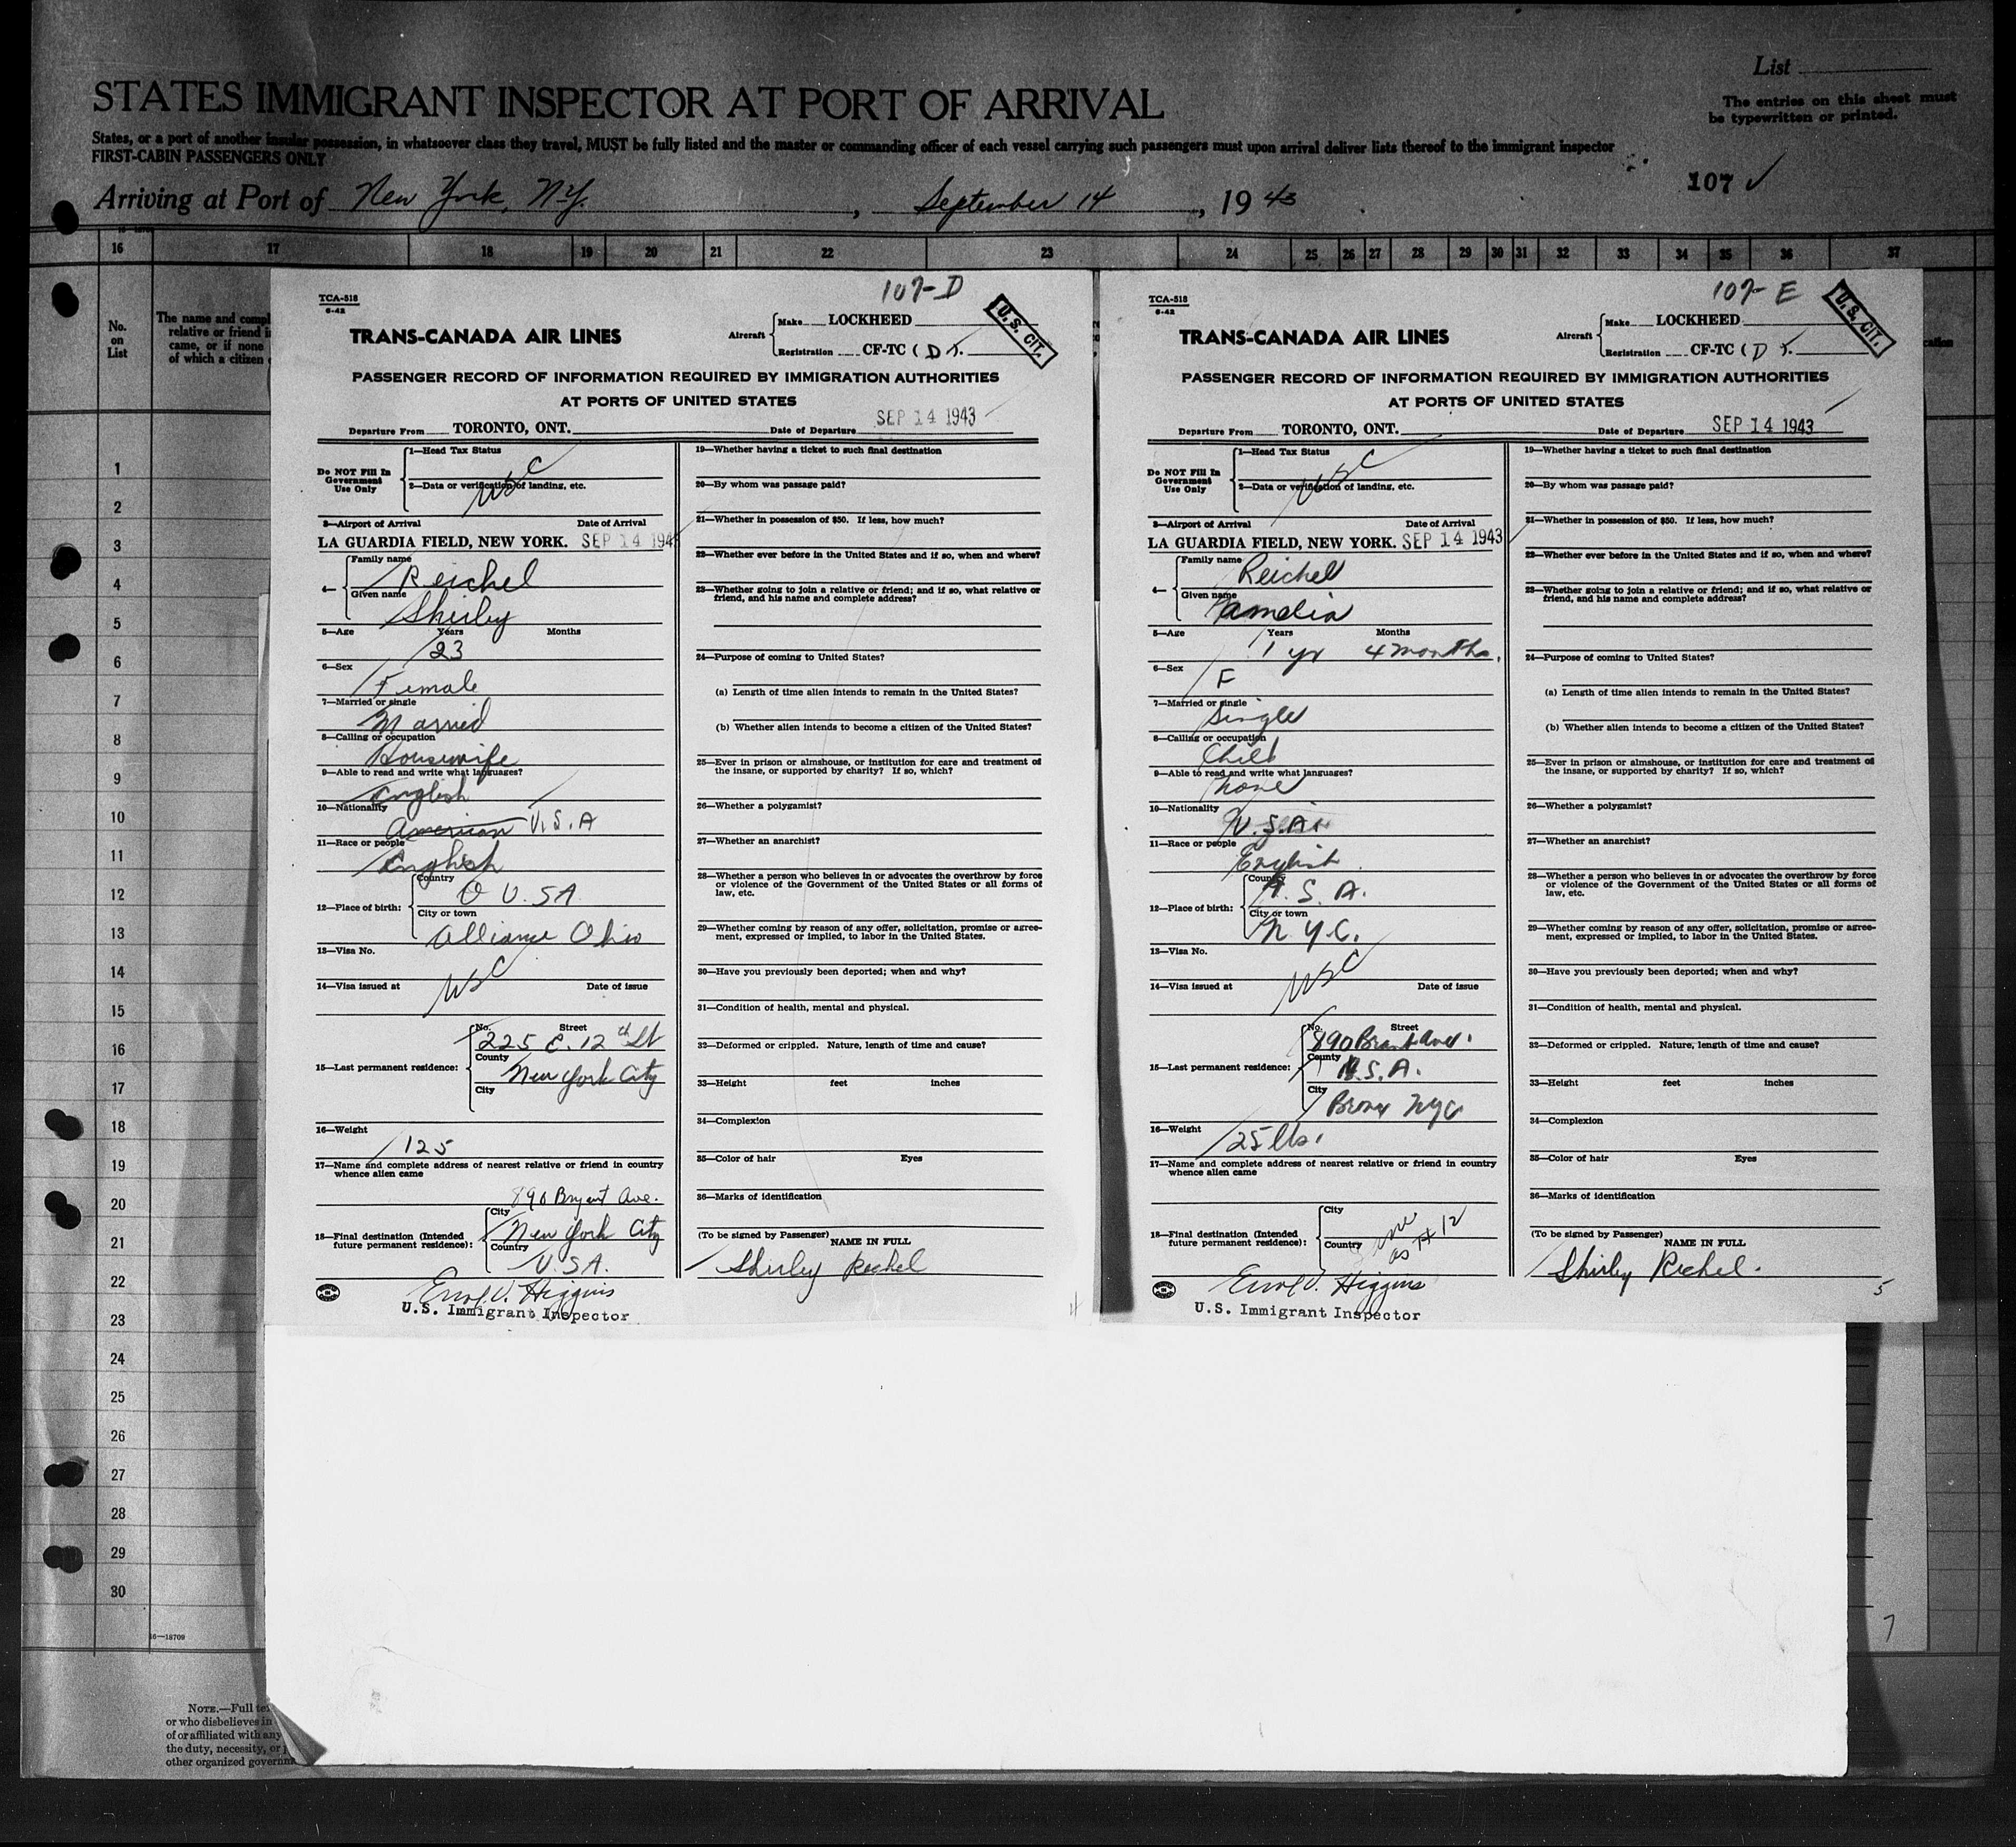 List
STATES IMMIGRANT INSPECTOR AT PORT OF ARRIVAL
The entries on this sheet must
be typewritten or printed.
States, or a port of another insular possession, in whatsoever class they travel, MUST be fully listed and the master or commanding officer of each vessel carrying such passengers must upon arrival deliver lists thereof to the immigrant inspector
FIRST-CABIN PASSENGERS ONLY
107 ✓
Arriving at Port of New York, N.Y., September 14, 1943
16 17 18 19 20 21 22 23 24 25 26 27 28 29 30 31 32 33 34 35 36 37
No.
on
List
The name and compl
relative or friend i
came, or if none
of which a citizen
1
2
3
4
5
6
7
8
9
10
11
12
13
14
15
16
17
18
19
20
21
22
23
24
25
26
27
28
29
30
16—18709
NOTE.—Full te
or who disbelieves in
of or affiliated with any
the duty, necessity, or
other organized governm
107-D
TCA-518
6-42
TRANS-CANADA AIR LINES
Aircraft
Make LOCKHEED
Registration CF-TC (D).
U.S. CIT.
PASSENGER RECORD OF INFORMATION REQUIRED BY IMMIGRATION AUTHORITIES
AT PORTS OF UNITED STATES
Departure From TORONTO, ONT. Date of Departure SEP 14 1943
Do NOT Fill In
Government
Use Only
1—Head Tax Status
USC
2—Data or verification of landing, etc.
3—Airport of Arrival Date of Arrival
LA GUARDIA FIELD, NEW YORK. SEP 14 194
4—
Family name
Reichel
Given name
Shirley
5—Age Years Months
23
6—Sex
Female
7—Married or single
Married
8—Calling or occupation
Housewife
9—Able to read and write what languages?
English
10—Nationality
American U.S.A
11—Race or people
English
12—Place of birth:
Country
U.S.A
City or town
Alliance Ohio
13—Visa No.
USC
14—Visa issued at Date of issue
15—Last permanent residence:
No. Street
225 E. 12th St
County
New York City
City
16—Weight
125
17—Name and complete address of nearest relative or friend in country
whence alien came
890 Bryant Ave.
18—Final destination (Intended
future permanent residence):
City
New York City
Country
U.S.A.
Errol V. Higgins
U.S. Immigrant Inspector
19—Whether having a ticket to such final destination
20—By whom was passage paid?
21—Whether in possession of $50. If less, how much?
22—Whether ever before in the United States and if so, when and where?
23—Whether going to join a relative or friend; and if so, what relative or
friend, and his name and complete address?
24—Purpose of coming to United States?
(a) Length of time alien intends to remain in the United States?
(b) Whether alien intends to become a citizen of the United States?
25—Ever in prison or almshouse, or institution for care and treatment of
the insane, or supported by charity? If so, which?
26—Whether a polygamist?
27—Whether an anarchist?
28—Whether a person who believes in or advocates the overthrow by force
or violence of the Government of the United States or all forms of
law, etc.
29—Whether coming by reason of any offer, solicitation, promise or agree-
ment, expressed or implied, to labor in the United States.
30—Have you previously been deported; when and why?
31—Condition of health, mental and physical.
32—Deformed or crippled. Nature, length of time and cause?
33—Height feet inches
34—Complexion
35—Color of hair Eyes
36—Marks of identification
(To be signed by Passenger) NAME IN FULL
Shirley Reichel
4
107-E
TCA-518
6-42
TRANS-CANADA AIR LINES
Aircraft
Make LOCKHEED
Registration CF-TC (D).
U.S. CIT.
PASSENGER RECORD OF INFORMATION REQUIRED BY IMMIGRATION AUTHORITIES
AT PORTS OF UNITED STATES
Departure From TORONTO, ONT. Date of Departure SEP 14 1943
Do NOT Fill In
Government
Use Only
1—Head Tax Status
USC
2—Data or verification of landing, etc.
3—Airport of Arrival Date of Arrival
LA GUARDIA FIELD, NEW YORK. SEP 14 1943
4—
Family name
Reichel
Given name
Pamelia
5—Age Years Months
1 yr 4 months.
6—Sex
F
7—Married or single
Single
8—Calling or occupation
Child
9—Able to read and write what languages?
None
10—Nationality
U.S.A.
11—Race or people
English
12—Place of birth:
Country
U.S.A.
City or town
N.Y.C.
13—Visa No.
USC
14—Visa issued at Date of issue
15—Last permanent residence:
No. Street
890 Ave.
County
U.S.A.
City
Bronx NYC
16—Weight
25 lbs.
17—Name and complete address of nearest relative or friend in country
whence alien came
18—Final destination (Intended
future permanent residence):
City
Same
Country
as # 12
Errol V. Higgins
U.S. Immigrant Inspector
19—Whether having a ticket to such final destination
20—By whom was passage paid?
21—Whether in possession of $50. If less, how much?
22—Whether ever before in the United States and if so, when and where?
23—Whether going to join a relative or friend; and if so, what relative or
friend, and his name and complete address?
24—Purpose of coming to United States?
(a) Length of time alien intends to remain in the United States?
(b) Whether alien intends to become a citizen of the United States?
25—Ever in prison or almshouse, or institution for care and treatment of
the insane, or supported by charity? If so, which?
26—Whether a polygamist?
27—Whether an anarchist?
28—Whether a person who believes in or advocates the overthrow by force
or violence of the Government of the United States or all forms of
law, etc.
29—Whether coming by reason of any offer, solicitation, promise or agree-
ment, expressed or implied, to labor in the United States.
30—Have you previously been deported; when and why?
31—Condition of health, mental and physical.
32—Deformed or crippled. Nature, length of time and cause?
33—Height feet inches
34—Complexion
35—Color of hair Eyes
36—Marks of identification
(To be signed by Passenger) NAME IN FULL
Shirley Reichel.
5
7